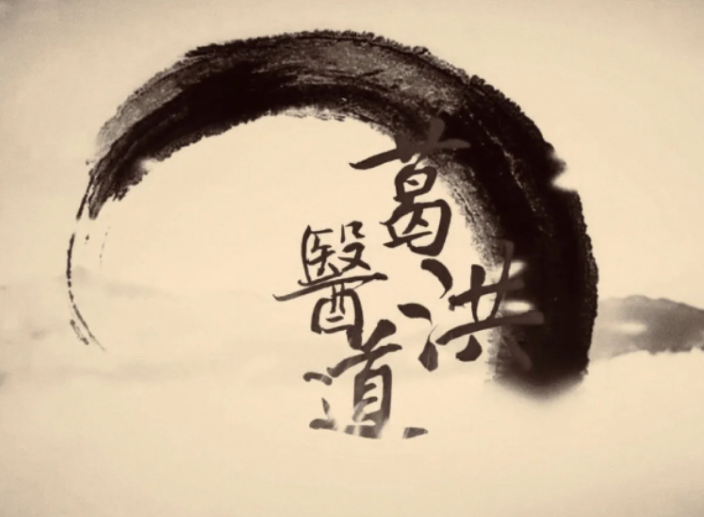 葛洪
醫道